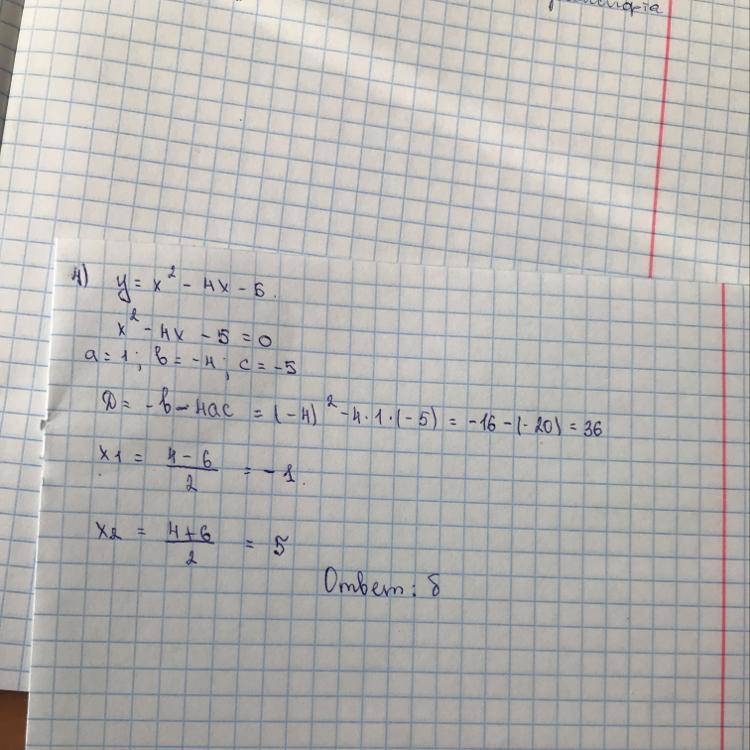 4) y = x² - 4x - 5.
x² - 4x - 5 = 0
a = 1; b = -4; c = -5
D = -b - 4ac = (-4)² - 4·1·(-5) = -16 - (-20) = 36
x1 = (4-6)/2 = -1.
x2 = (4+6)/2 = 5
Ответ: б